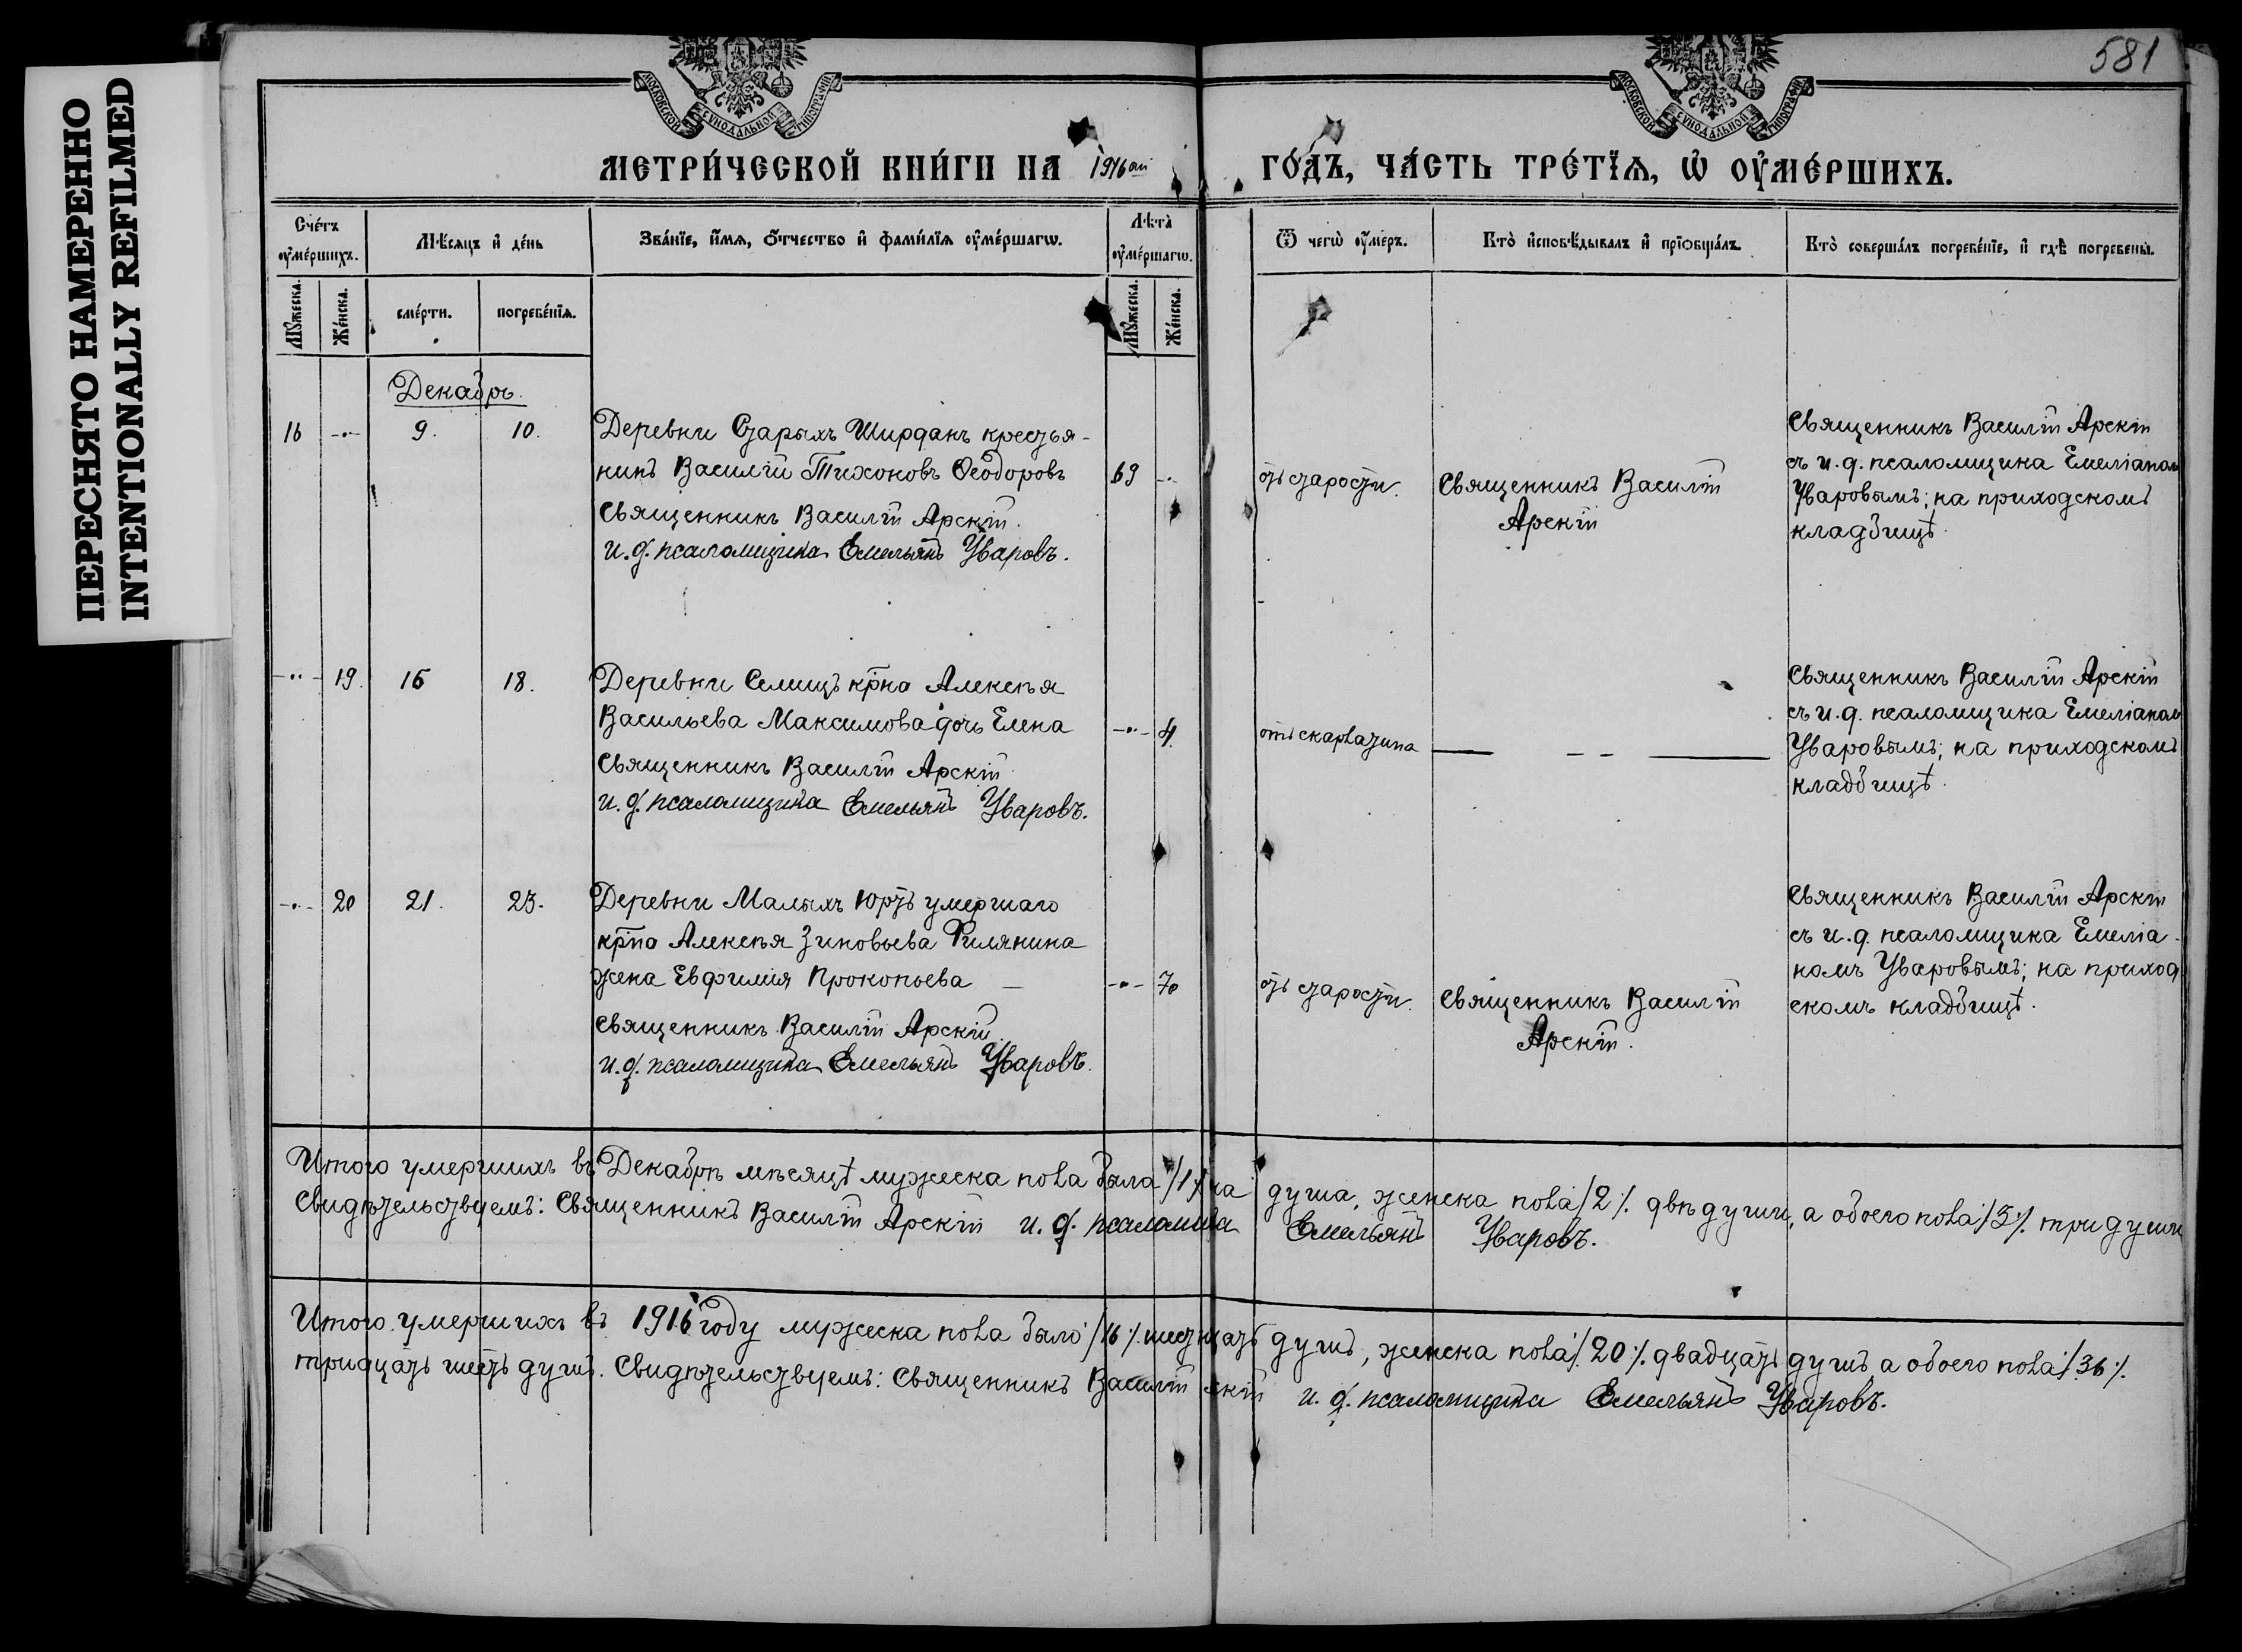 ПЕРЕСНЯТО НАМЕРЕННО
INTENTIONALLY REFILMED
581
МОСКОВСКОЙ СѴНОДАЛЬНОЙ ТИПОГРАФІИ
МОСКОВСКОЙ СѴНОДАЛЬНОЙ ТИПОГРАФІИ
МЕТРИ́ЧЕСКОЙ КНИ́ГИ НА 1916 ой ГО́ДЪ, ЧА́СТЬ ТРЕ́ТЇѦ, Ѡ҆ ОУ҆МЕ́РШИХЪ.
Сче́тъ оу҆ме́ршихъ.
Мѣ́сяцъ и҆ де́нь
Зва́нїе, и҆́мѧ, ѻ҆́тчество и҆ фами́лїѧ оу҆ме́ршагѡ.
Лѣ́та оу҆ме́ршагѡ.
Ѿ чегѡ̀ оу҆́меръ.
Кто̀ и҆сповѣ́дывалъ и҆ прїѡбща́лъ.
Кто̀ соверша́лъ погребе́нїе, и҆ гдѣ̀ погребены̀.
Мꙋ́жеска.
Же́нска.
сме́рти.
погребе́нїѧ.
Мꙋ́жеска.
Же́нска.
Декабрь.
16 -"- 9. 10. Деревни Старыхъ Ширданъ крестья-
нинъ Василій Тихоновъ Ѳеодоровъ 69 -"-
Священникъ Василій Арскій.
и. д. псаломщика Емельянъ Уваровъ.
отъ старости.
Священникъ Василій
Арскій
Священникъ Василій Арскій
съ и. д. псаломщика Емеліаном
Уваровымъ; на приходскомъ
кладбищѣ.
-"- 19. 16 18. Деревни Селищъ крна Алексѣя
Васильева Максимова дочь Елена -"- 4.
Священникъ Василій Арскій
и. д. псаломщика Емельянъ Уваровъ.
отъ скарлатина
Священникъ Василій Арскій
съ и. д. псаломщика Емеліаном
Уваровымъ; на приходскомъ
кладбищѣ.
-"- 20 21. 23. Деревни Малыхъ Юртъ умершаго
крна Алексѣя Зиновьева Филянина
жена Евфимія Прокопьева -"- 70
Священникъ Василій Арскій
и. д. псаломщика Емельянъ Уваровъ.
отъ старости.
Священникъ Василій
Арскій.
Священникъ Василій Арскій
съ и. д. псаломщика Емеліа-
номъ Уваровымъ; на приход
скомъ кладбищѣ.
Итого умершихъ въ Декабрѣ мѣсяцѣ мужеска пола была /1/ душа, женска пола /2/. двѣ души, а обоего пола /3/. три души
Свидѣтельствуемъ: Священникъ Василій Арскій и. д. псаломщика Емельянъ Уваровъ.
Итого умершихъ въ 1916 году мужеска пола было /16/. шестнацать душъ, женска пола /20/. двадцать душъ, а обоего пола /36/.
тридцать шесть душъ. Свидѣтельствуемъ: Священникъ Василій Арскій и. д. псаломщика Емельянъ Уваровъ.